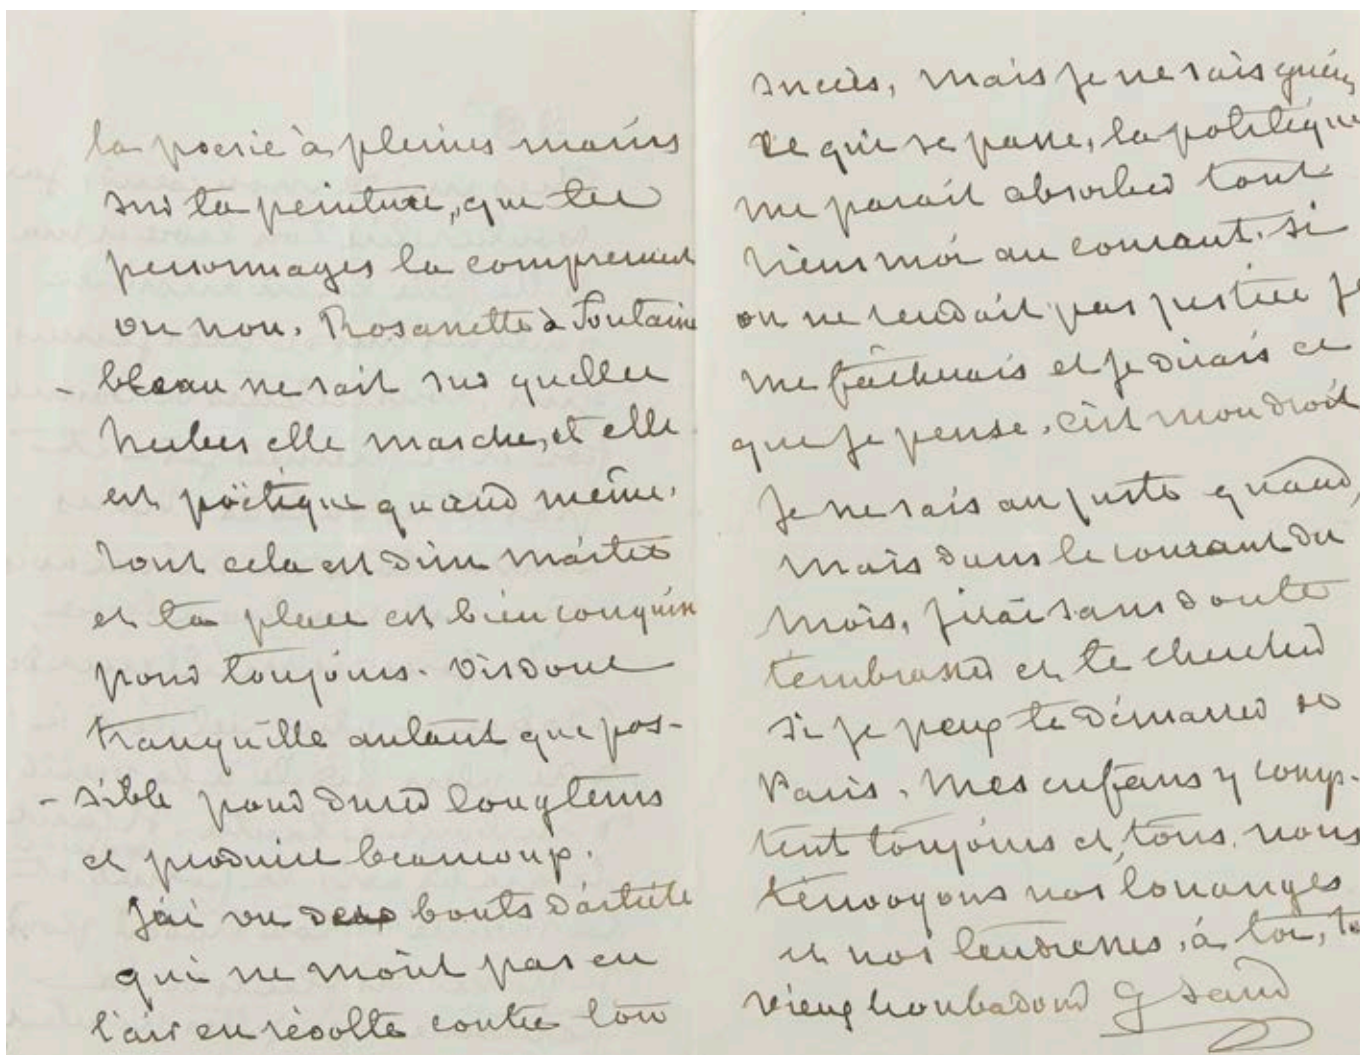 la poesie à pleines mains
sur ta peinture, que tes
personnages la comprennent
ou non. Rosanette à Fontaine
- bleau ne sait sur quelles
herbes elle marche, et elle
est poëtique quand même.
tout cela est d'un maître
et ta place est bien conquise
pour toujours. vis donc
tranquille autant que pos-
- sible pour durer longtems
et produire beaucoup.
J'ai vu deux bouts d'article
qui ne m'ont pas eu
l'air en révolte contre ton
succès, mais je ne sais guère
ce qui se passe, la politique
me parait absorber tout
tiens moi au courant. si
on ne rendait pas justice je
me fâcherais et je dirais ce
que je pense. c'est mon droit
Je ne sais au juste quand,
mais dans le courant du
mois, j'irai sans doute
t'embrasser et te chercher
si je peux te démarrer de
Paris. Mes enfans y comp-
tent toujours et tous, nous
t'envoyons nos louanges
et nos tendresses, à toi, to
vieux troubadour G Sand